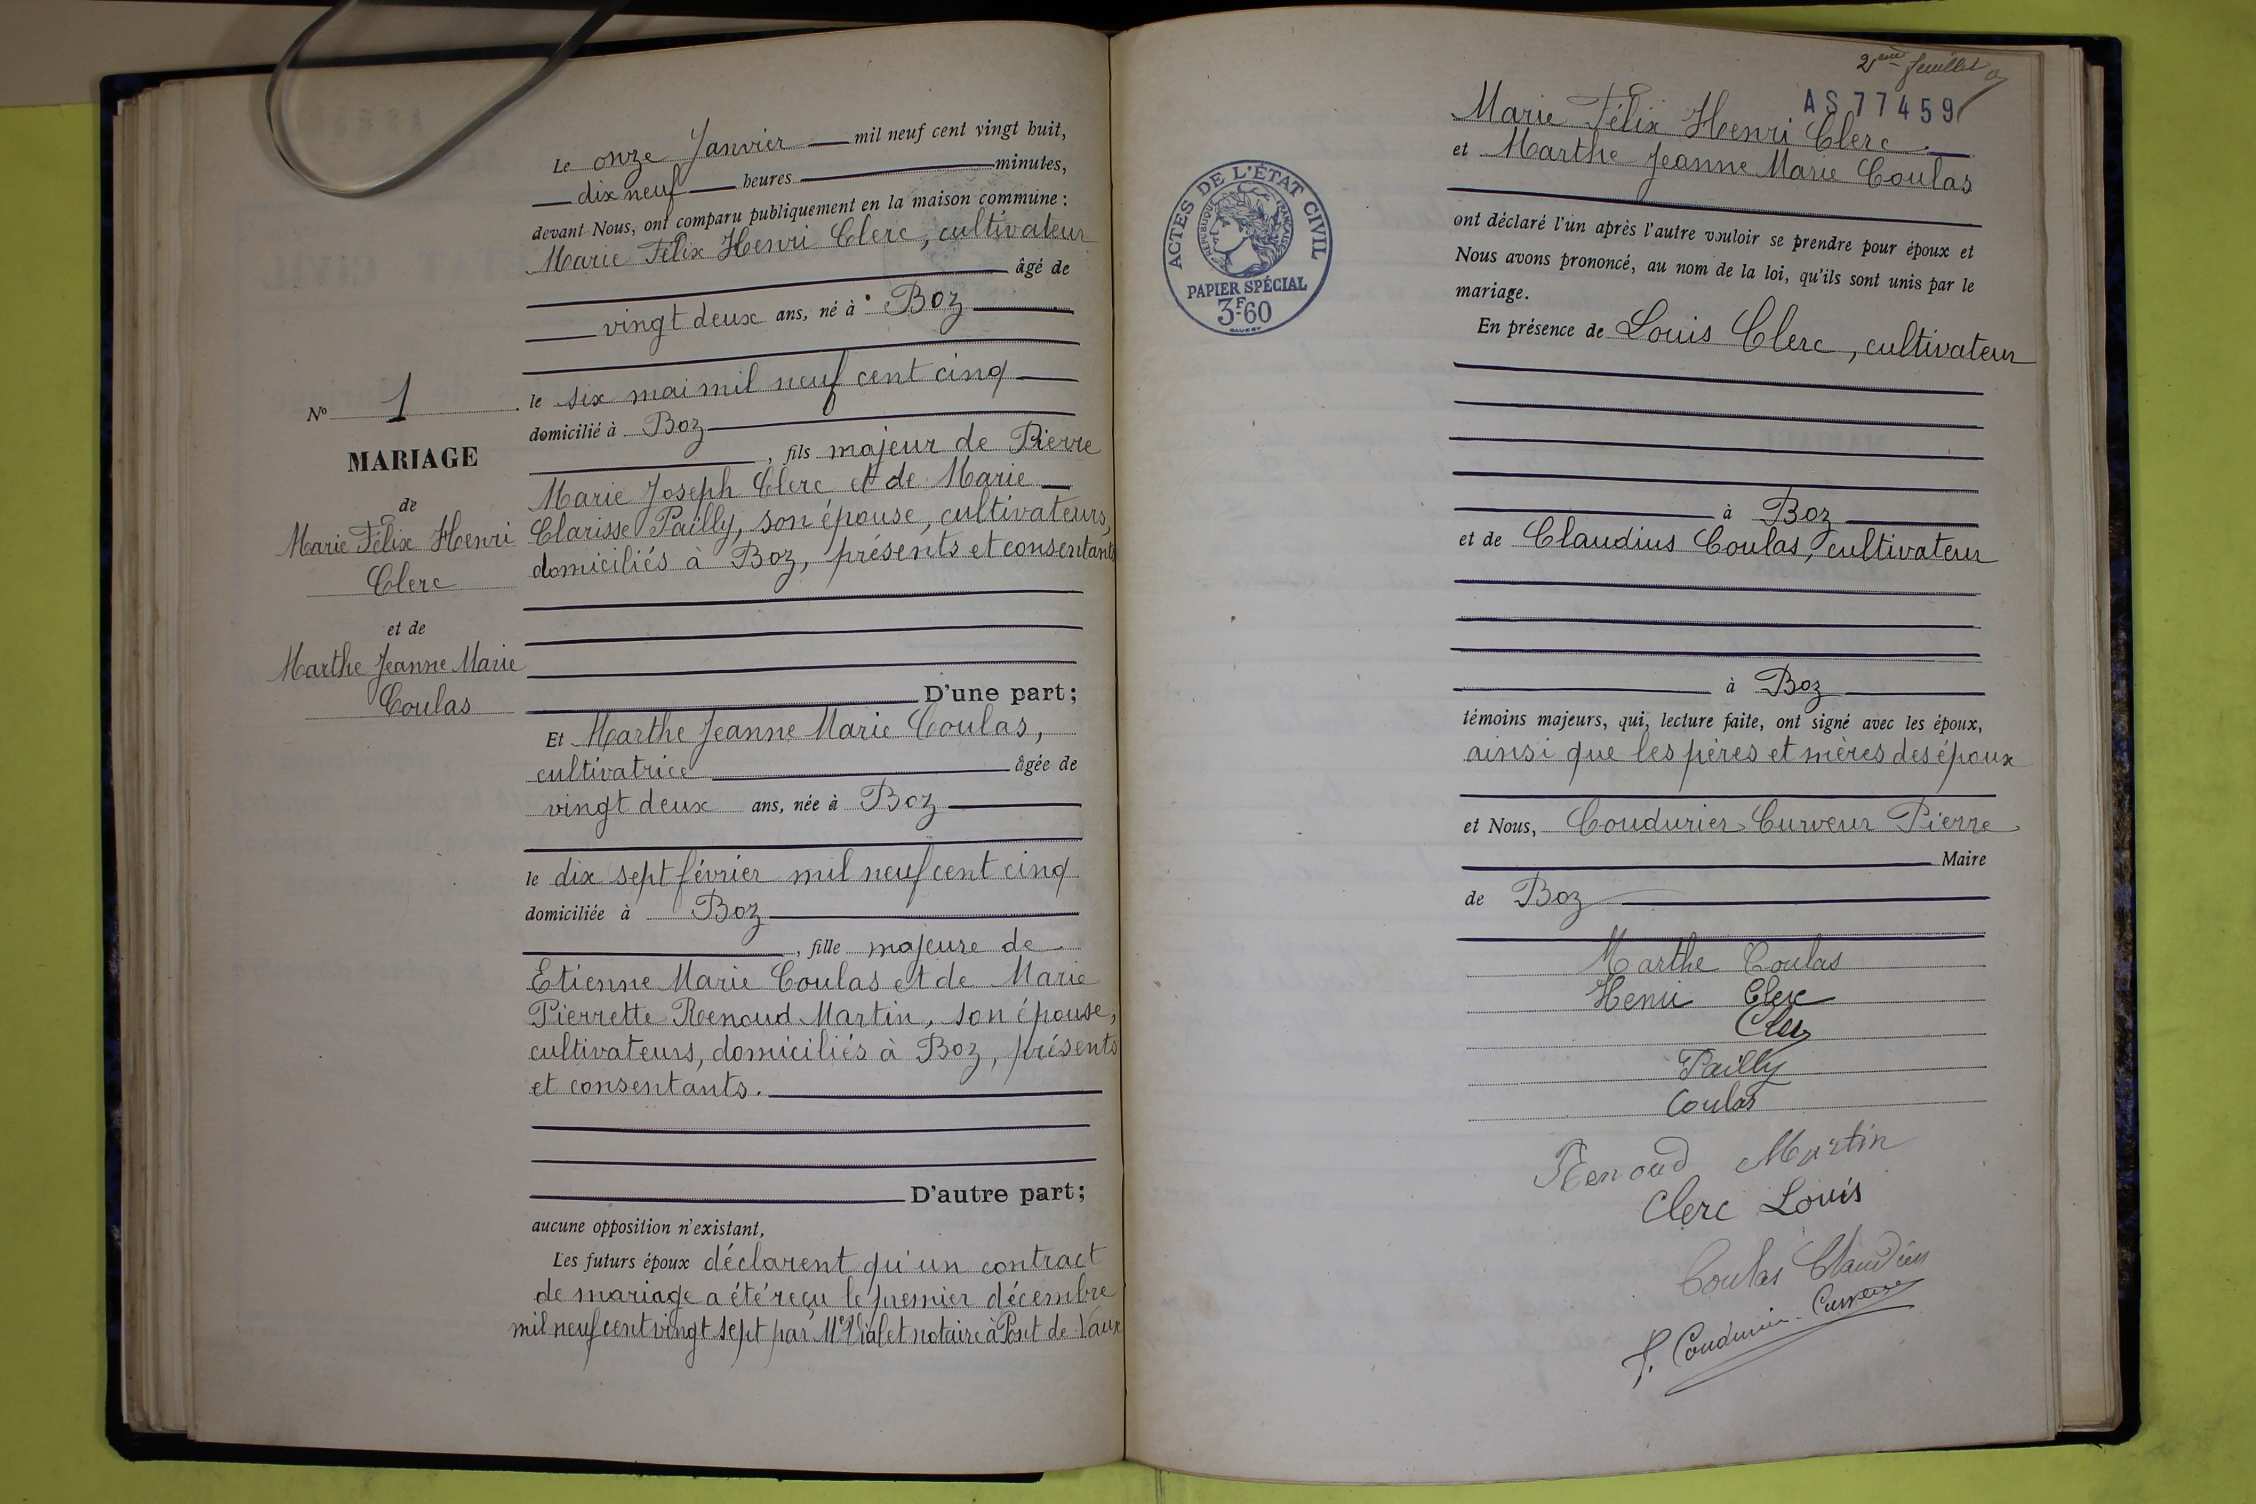 Le onze Janvier mil neuf cent vingt huit,
dix neuf heures minutes,
devant Nous, ont comparu publiquement en la maison commune :
Marie Félix Henri Clerc, cultivateur
âgé de
vingt deux ans, né à Boz
le six mai mil neuf cent cinq
domicilié à Boz
, fils majeur de Pierre
Marie Joseph Clerc et de Marie
Clarisse Pailly, son épouse, cultivateurs,
domiciliés à Boz, présents et consentants
D'une part;
Et Marthe Jeanne Marie Coulas,
cultivatrice âgée de
vingt deux ans, née à Boz
le dix sept février mil neuf cent cinq
domiciliée à Boz
, fille majeure de
Etienne Marie Coulas et de Marie
Pierrette Renoud Martin, son épouse,
cultivateurs, domiciliés à Boz, présents
et consentants.
D'autre part;
aucune opposition n'existant,
Les futurs époux déclarent qu'un contract
de mariage a été reçu le premier décembre
mil neuf cent vingt sept par Me Vialet notaire à Pont de Vaux
No 1
MARIAGE
de
Marie Félix Henri
Clerc
et de
Marthe Jeanne Marie
Coulas
2ème feuillet
AS77459
ACTES DE L'ÉTAT CIVIL
RÉPUBLIQUE FRANÇAISE
PAPIER SPÉCIAL
3F.60
Marie Félix Henri Clerc
et Marthe Jeanne Marie Coulas
ont déclaré l'un après l'autre vouloir se prendre pour époux et
Nous avons prononcé, au nom de la loi, qu'ils sont unis par le
mariage.
En présence de Louis Clerc, cultivateur
à Boz
et de Claudius Coulas, cultivateur
à Boz
témoins majeurs, qui, lecture faite, ont signé avec les époux,
ainsi que les pères et mères des époux
et Nous, Coudurier Curveur Pierre
Maire
de Boz
Marthe Coulas
Henri Clerc
Clerc
Pailly
Coulas
Renoud Martin
Clerc Louis
Coulas Claudius
P. Coudurier-Curveur